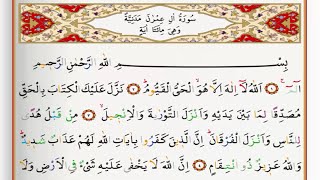 سُورَةُ اٰلِ عِمْرٰنَ مَدَنِيَّةٌ
وَهِيَ مِائَتَا اٰيَةٍ
بِسْــــــمِ اللّٰهِ الرَّحْمٰنِ الرَّحٖيمِ
الٓمٓ ۚ ١ اَللّٰهُ لَٓا اِلٰهَ اِلَّا هُوَۙ الْحَيُّ الْقَيُّومُۜ ٢ نَزَّلَ عَلَيْكَ الْكِتَابَ بِالْحَقِّ
مُصَدِّقًا لِمَا بَيْنَ يَدَيْهِ وَاَنْزَلَ التَّوْرٰيةَ وَالْاِنْجٖيلَۙ ٣ مِنْ قَبْلُ هُدًى
لِلنَّاسِ وَاَنْزَلَ الْفُرْقَانَۜ اِنَّ الَّذٖينَ كَفَرُوا بِاٰيَاتِ اللّٰهِ لَهُمْ عَذَابٌ شَدٖيدٌۜ
وَاللّٰهُ عَزٖيزٌ ذُو انْتِقَامٍ ٤ اِنَّ اللّٰهَ لَا يَخْفٰى عَلَيْهِ شَيْءٌ فِي الْاَرْضِ وَلَا